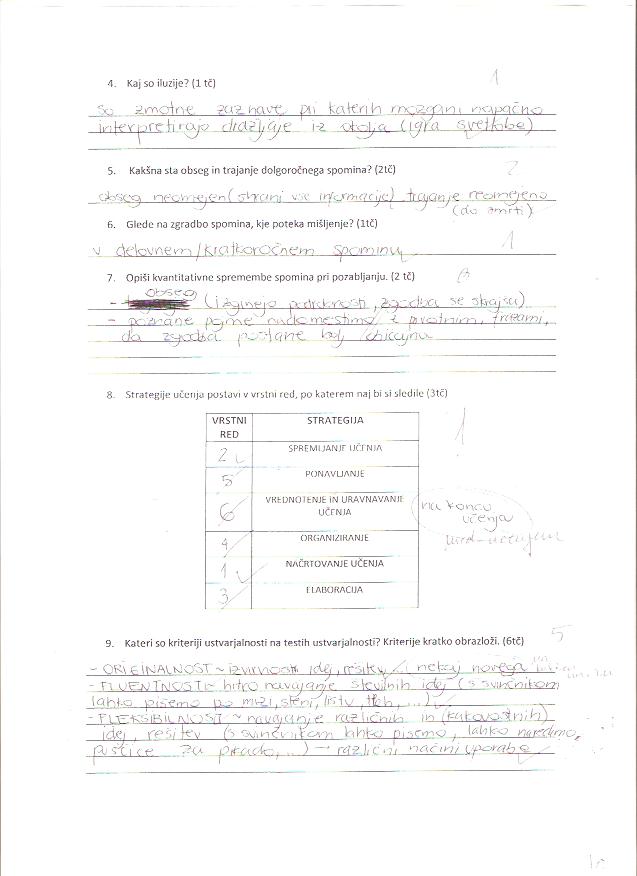 4. Kaj so iluzije? (1 tč)
1
so zmotne zaznave pri katerih možgani napačno
interpretirajo dražljaje iz okolja (igra svetlobe)
5. Kakšna sta obseg in trajanje dolgoročnega spomina? (2tč)
2
obseg neomejen (shrani vse informacije) trajanje neomejeno
(do smrti)
6. Glede na zgradbo spomina, kje poteka mišljenje? (1tč)
1
v delovnem/kratkoročnem spominu
7. Opiši kvantitativne spremembe spomina pri pozabljanju. (2 tč)
obseg
- (izginejo podrobnosti, zgodba se skrajša)
- poznane pojme nadomestimo z prvotnim, frazami,
da zgodba postane bolj običajna
8. Strategije učenja postavi v vrstni red, po katerem naj bi si sledile (3tč)
1
VRSTNI RED STRATEGIJA
2 SPREMLJANJE UČENJA
5 PONAVLJANJE
6 VREDNOTENJE IN URAVNAVANJE UČENJA
na koncu
učenja
4 ORGANIZIRANJE
1 NAČRTOVANJE UČENJA
3 ELABORACIJA
9. Kateri so kriteriji ustvarjalnosti na testih ustvarjalnosti? Kriterije kratko obrazloži. (6tč)
5
- ORIGINALNOST ~ izvirnost idej, rešitev, nekaj novega
- FLUENTNOST ~ hitro navajanje številnih idej (s svinčnikom
lahko pišemo po mizi, steni, listu, tleh, ...)
- FLEKSIBILNOST ~ navajanje različnih in (kakovostnih)
idej, rešitev (s svinčnikom lahko pišemo, lahko naredimo
puščice za pikado, ...) → različni načini uporabe